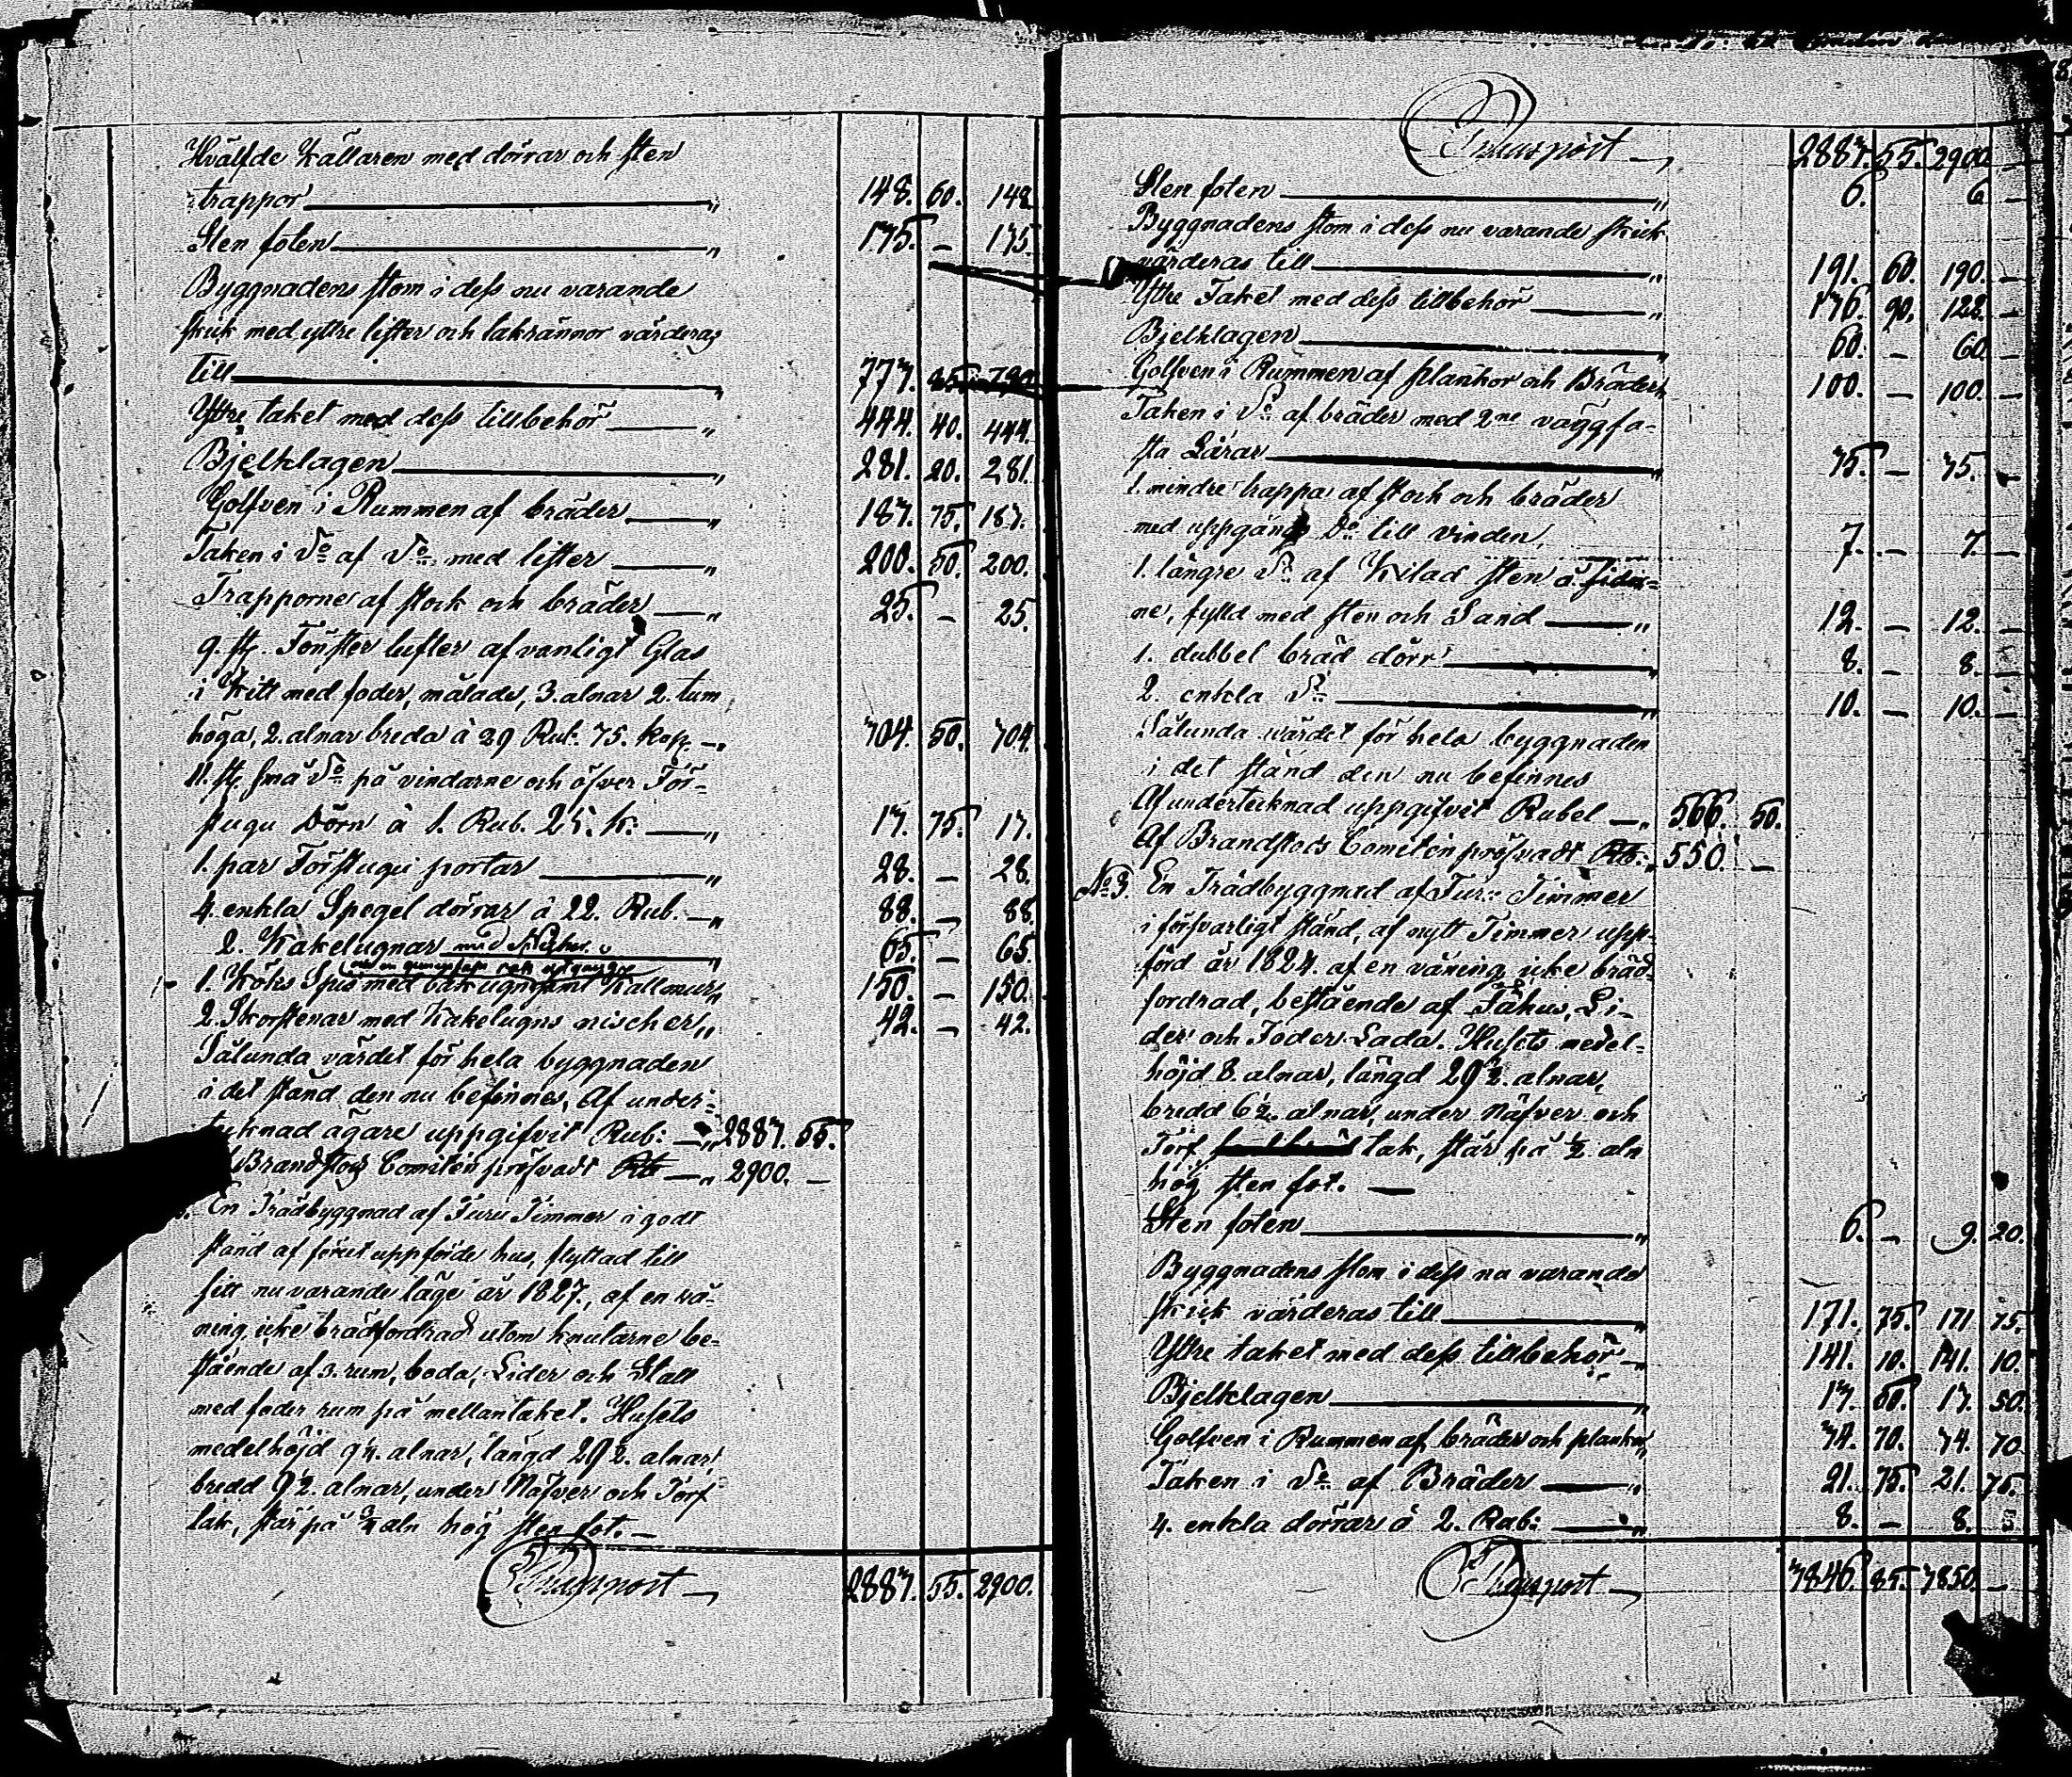 Hvälfde Källaren med dörrar och sten
trappor „ 148. 60. 148
Sten foten „ 175. – 175
Byggnadens stom i dess nu varande
skick med yttre lister och takrännor värderas
till „ 777. 85. 790
Yttre taket med dess tillbehör „ 444. 40. 444.
Bjelklagen „ 281. 20. 281.
Golfven i Rummen af bräder „ 187. 75. 187.
Taken i Do af Do med lister „ 200. 50. 200.
Trapporne af stock och bräder „ 25. – 25.
9. st. Fönster lufter af vanligt Glas
i Kitt med foder, målade, 3. alnar 2. tum
höga, 2. alnar breda à 29 Rub. 75. kop. 704. 50. 704.
11. st. små Do på vindarne och öfver För-
stugu Dörn à 1. Rub. 25. k: „ 17. 75. 17.
1. par Förstugu portar „ 28. – 28.
4. enkla Spegel dörrar à 22. Rub. „ 88. – 88
2. Kakelugnar med „ 65. – 65
1. Köks Spis med bakugn samt Kallmur „ 150. – 150.
2. Skorstenar med Kakelugns nischer „ 42. – 42.
Sålunda värdet för hela byggnaden
i det stånd den nu befinnes, Af under-
tecknad ägare uppgifvit Rub: „ 2887. 55.
Brandstods Comitén pröfvadt Rb „ 2900. –
En Trädbyggnad af Furu Timmer i godt
stånd af förut uppförde hus, flyttad till
sitt nu varande läge år 1827, af en vå-
ning, icke brädfordrad utom knutarne be-
stående af 3. rum, boda, Lider och Stall
med foder rum på mellantaket. Husets
medelhöjd 9¼. alnar, längd 29½. alnar,
bredd 9½. alnar, under Näfver och Torf
tak, står på ¾ aln hög sten fot. –
Transport 2887. 55. 2900.
Transport 2887. 55. 2900 –
Sten foten „ 6. 6 –
Byggnadens stom i dess nu varande skick
värderas till „ 191. 60. 190. –
Yttre Taket med dess tillbehör „ 176. 90. 122. –
Bjelklagen „ 60. – 60 –
Golfven i Rummen af plankor och Bräder „ 100. – 100. –
Taken i Do af bräder med 2ne väggfa-
sta Lärar „ 75. – 75. –
1. mindre trappa af stock och bräder
med uppgång Do till vinden 7. – 7 –
1. längre Do af Kilad sten å sidor-
ne, fylld med sten och Sand „ 12. – 12. –
1. dubbel bräd dörr „ 8. – 8. –
2. enkla Do „ 10. – 10. –
Sålunda wärdet för hela byggnaden
i det stånd den nu befinnes
Af undertecknad uppgifvit Rubel „ 566. 50.
Af Brandstods Comitén pröfvadt Rb. „ 550. –
No 3. En Trädbyggnad af Furu Timmer
i försvarligt stånd, af nytt Timmer upp-
förd år 1824. af en våning, icke bräd-
fordrad, bestående af Fähus, Li-
der och Foder Lada. Husets medel-
höjd 8. alnar, längd 29½. alnar,
bredd 6½. alnar, under Näfver och
Torf tak, står på ½ aln
hög sten fot. –
Sten foten „ 6. – 9. 20.
Byggnadens stom i dess nu varande
skick värderas till „ 171. 75. 171 75.
Yttre taket med dess tillbehör „ 141. 10. 141. 10.
Bjelklagen „ 17. 50. 17. 50.
Golfven i Rummen af bräder och plankor „ 74. 70. 74. 70
Taken i Do af Bräder „ 21. 75. 21. 75.
4. enkla dörrar à 2. Rub: „ 8. – 8.
Transport 7846. 85. 7850. –